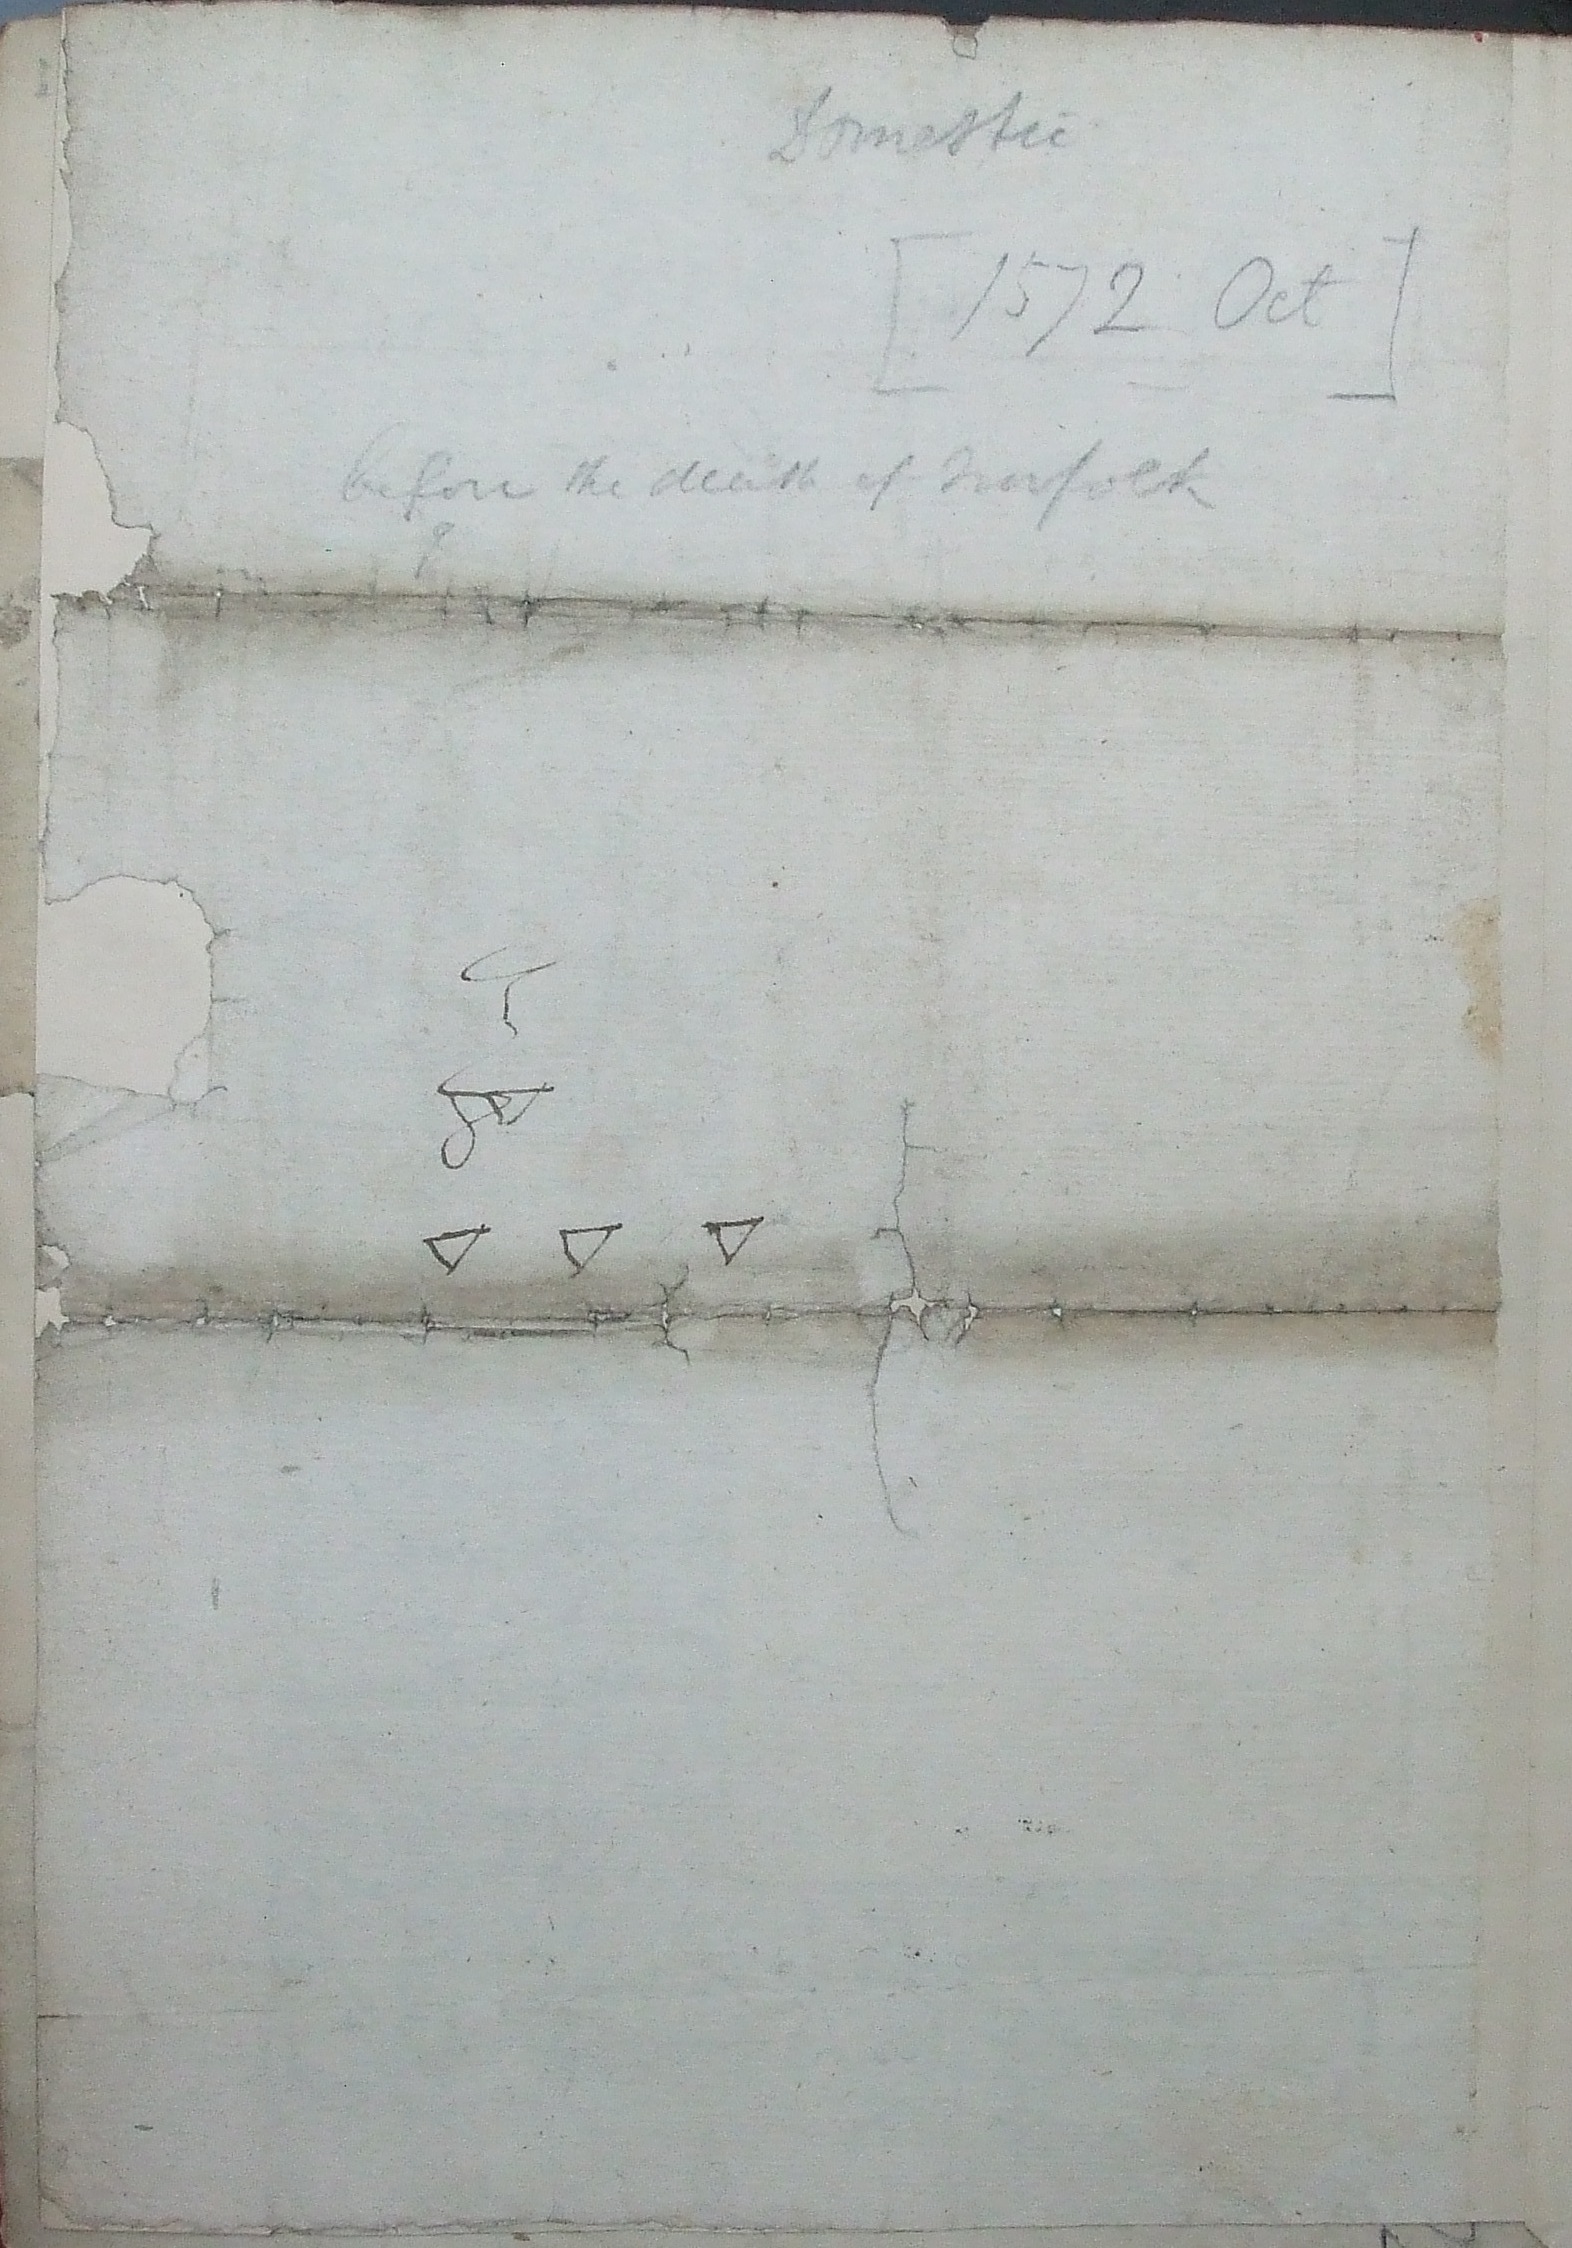 Domestic
[1572 Oct]
before the death of Norfolk
?